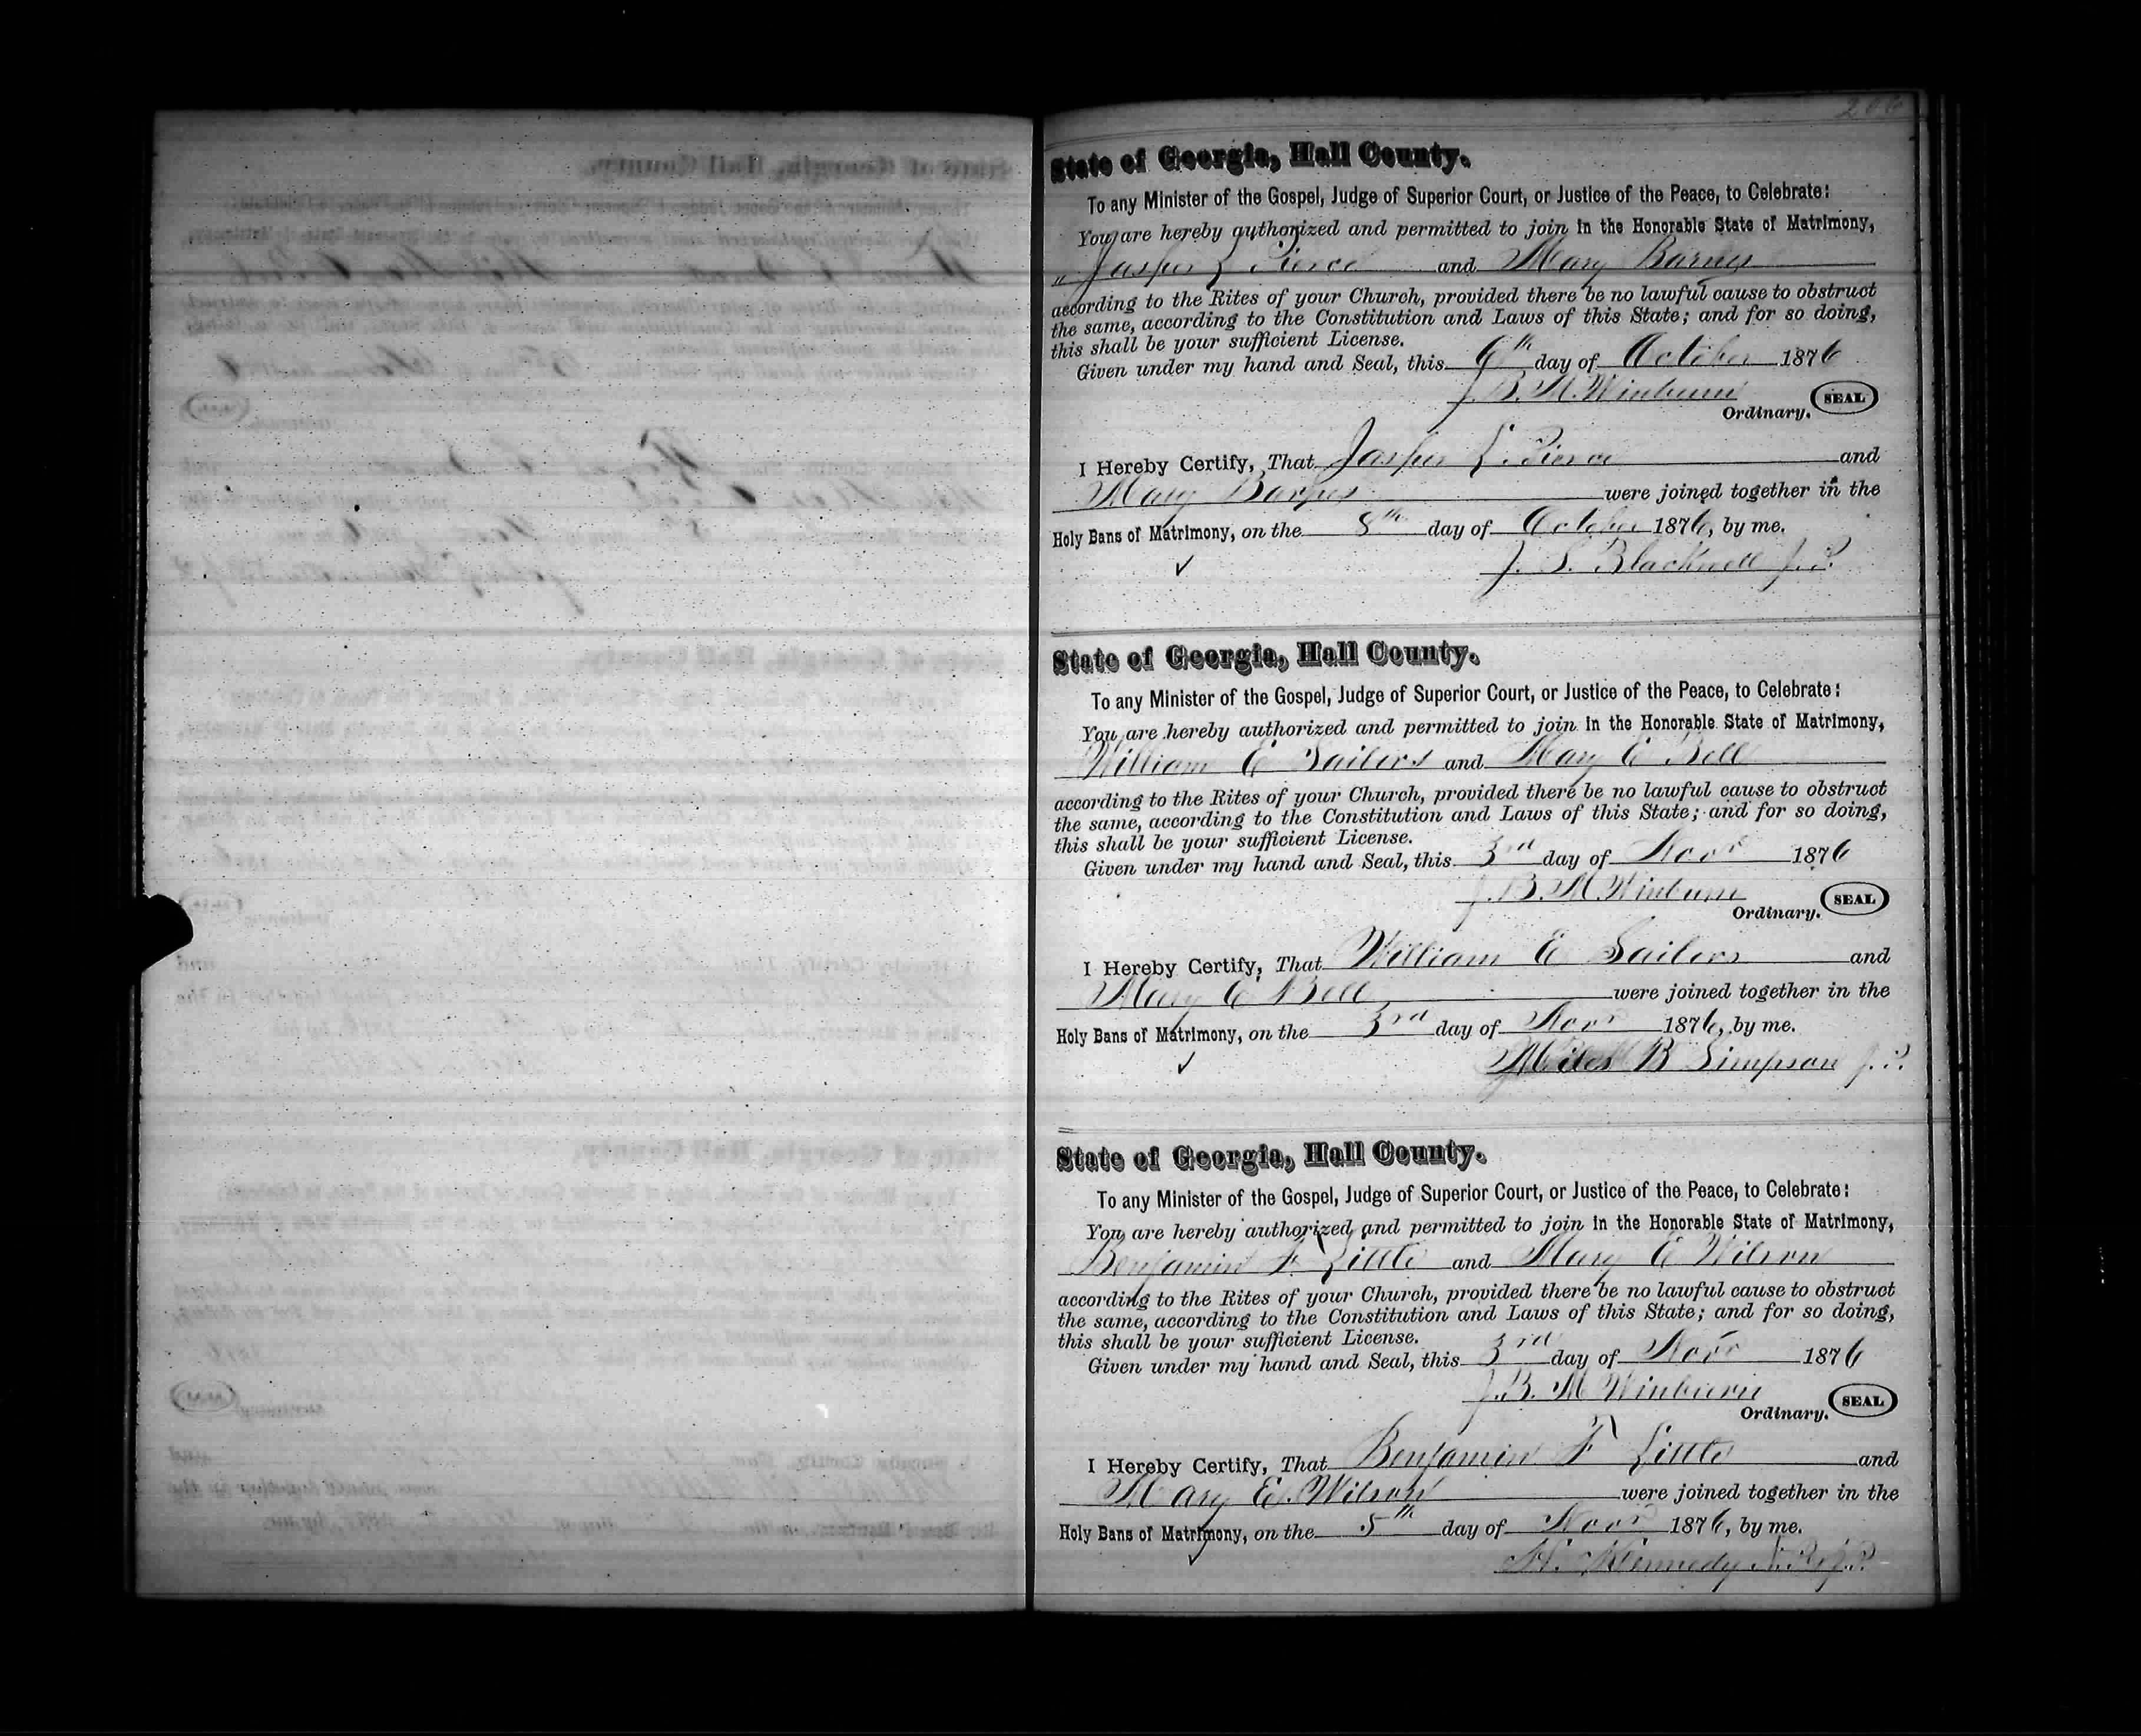 206
State of Georgia, Hall County.
To any Minister of the Gospel, Judge of Superior Court, or Justice of the Peace, to Celebrate:
You are hereby authorized and permitted to join in the Honorable State of Matrimony,
Jasper L Pierce and Mary Barnes
according to the Rites of your Church, provided there be no lawful cause to obstruct
the same, according to the Constitution and Laws of this State; and for so doing,
this shall be your sufficient License.
Given under my hand and Seal, this 6th day of October 1876
J. B. M. Winburn
Ordinary. SEAL
I Hereby Certify, That Jasper L. Pierce and
Mary Barnes were joined together in the
Holy Bans of Matrimony, on the 8th day of October 1876, by me.
J. S. Blackwell J. P.
State of Georgia, Hall County.
To any Minister of the Gospel, Judge of Superior Court, or Justice of the Peace, to Celebrate:
You are hereby authorized and permitted to join in the Honorable State of Matrimony,
William E Sailers and Mary E Bell
according to the Rites of your Church, provided there be no lawful cause to obstruct
the same, according to the Constitution and Laws of this State; and for so doing,
this shall be your sufficient License.
Given under my hand and Seal, this 3rd day of Novr 1876
J. B. M. Winburn
Ordinary. SEAL
I Hereby Certify, That William E Sailers and
Mary E Bell were joined together in the
Holy Bans of Matrimony, on the 3rd day of Novr 1876, by me.
Miles B Simpson J. P.
State of Georgia, Hall County.
To any Minister of the Gospel, Judge of Superior Court, or Justice of the Peace, to Celebrate:
You are hereby authorized and permitted to join in the Honorable State of Matrimony,
Benjamin F. Little and Mary E Wilson
according to the Rites of your Church, provided there be no lawful cause to obstruct
the same, according to the Constitution and Laws of this State; and for so doing,
this shall be your sufficient License.
Given under my hand and Seal, this 3rd day of Novr 1876
J. B. M Winburn
Ordinary. SEAL
I Hereby Certify, That Benjamin F Little and
Mary E. Wilson were joined together in the
Holy Bans of Matrimony, on the 5th day of Novr 1876, by me.
H. Kennedy